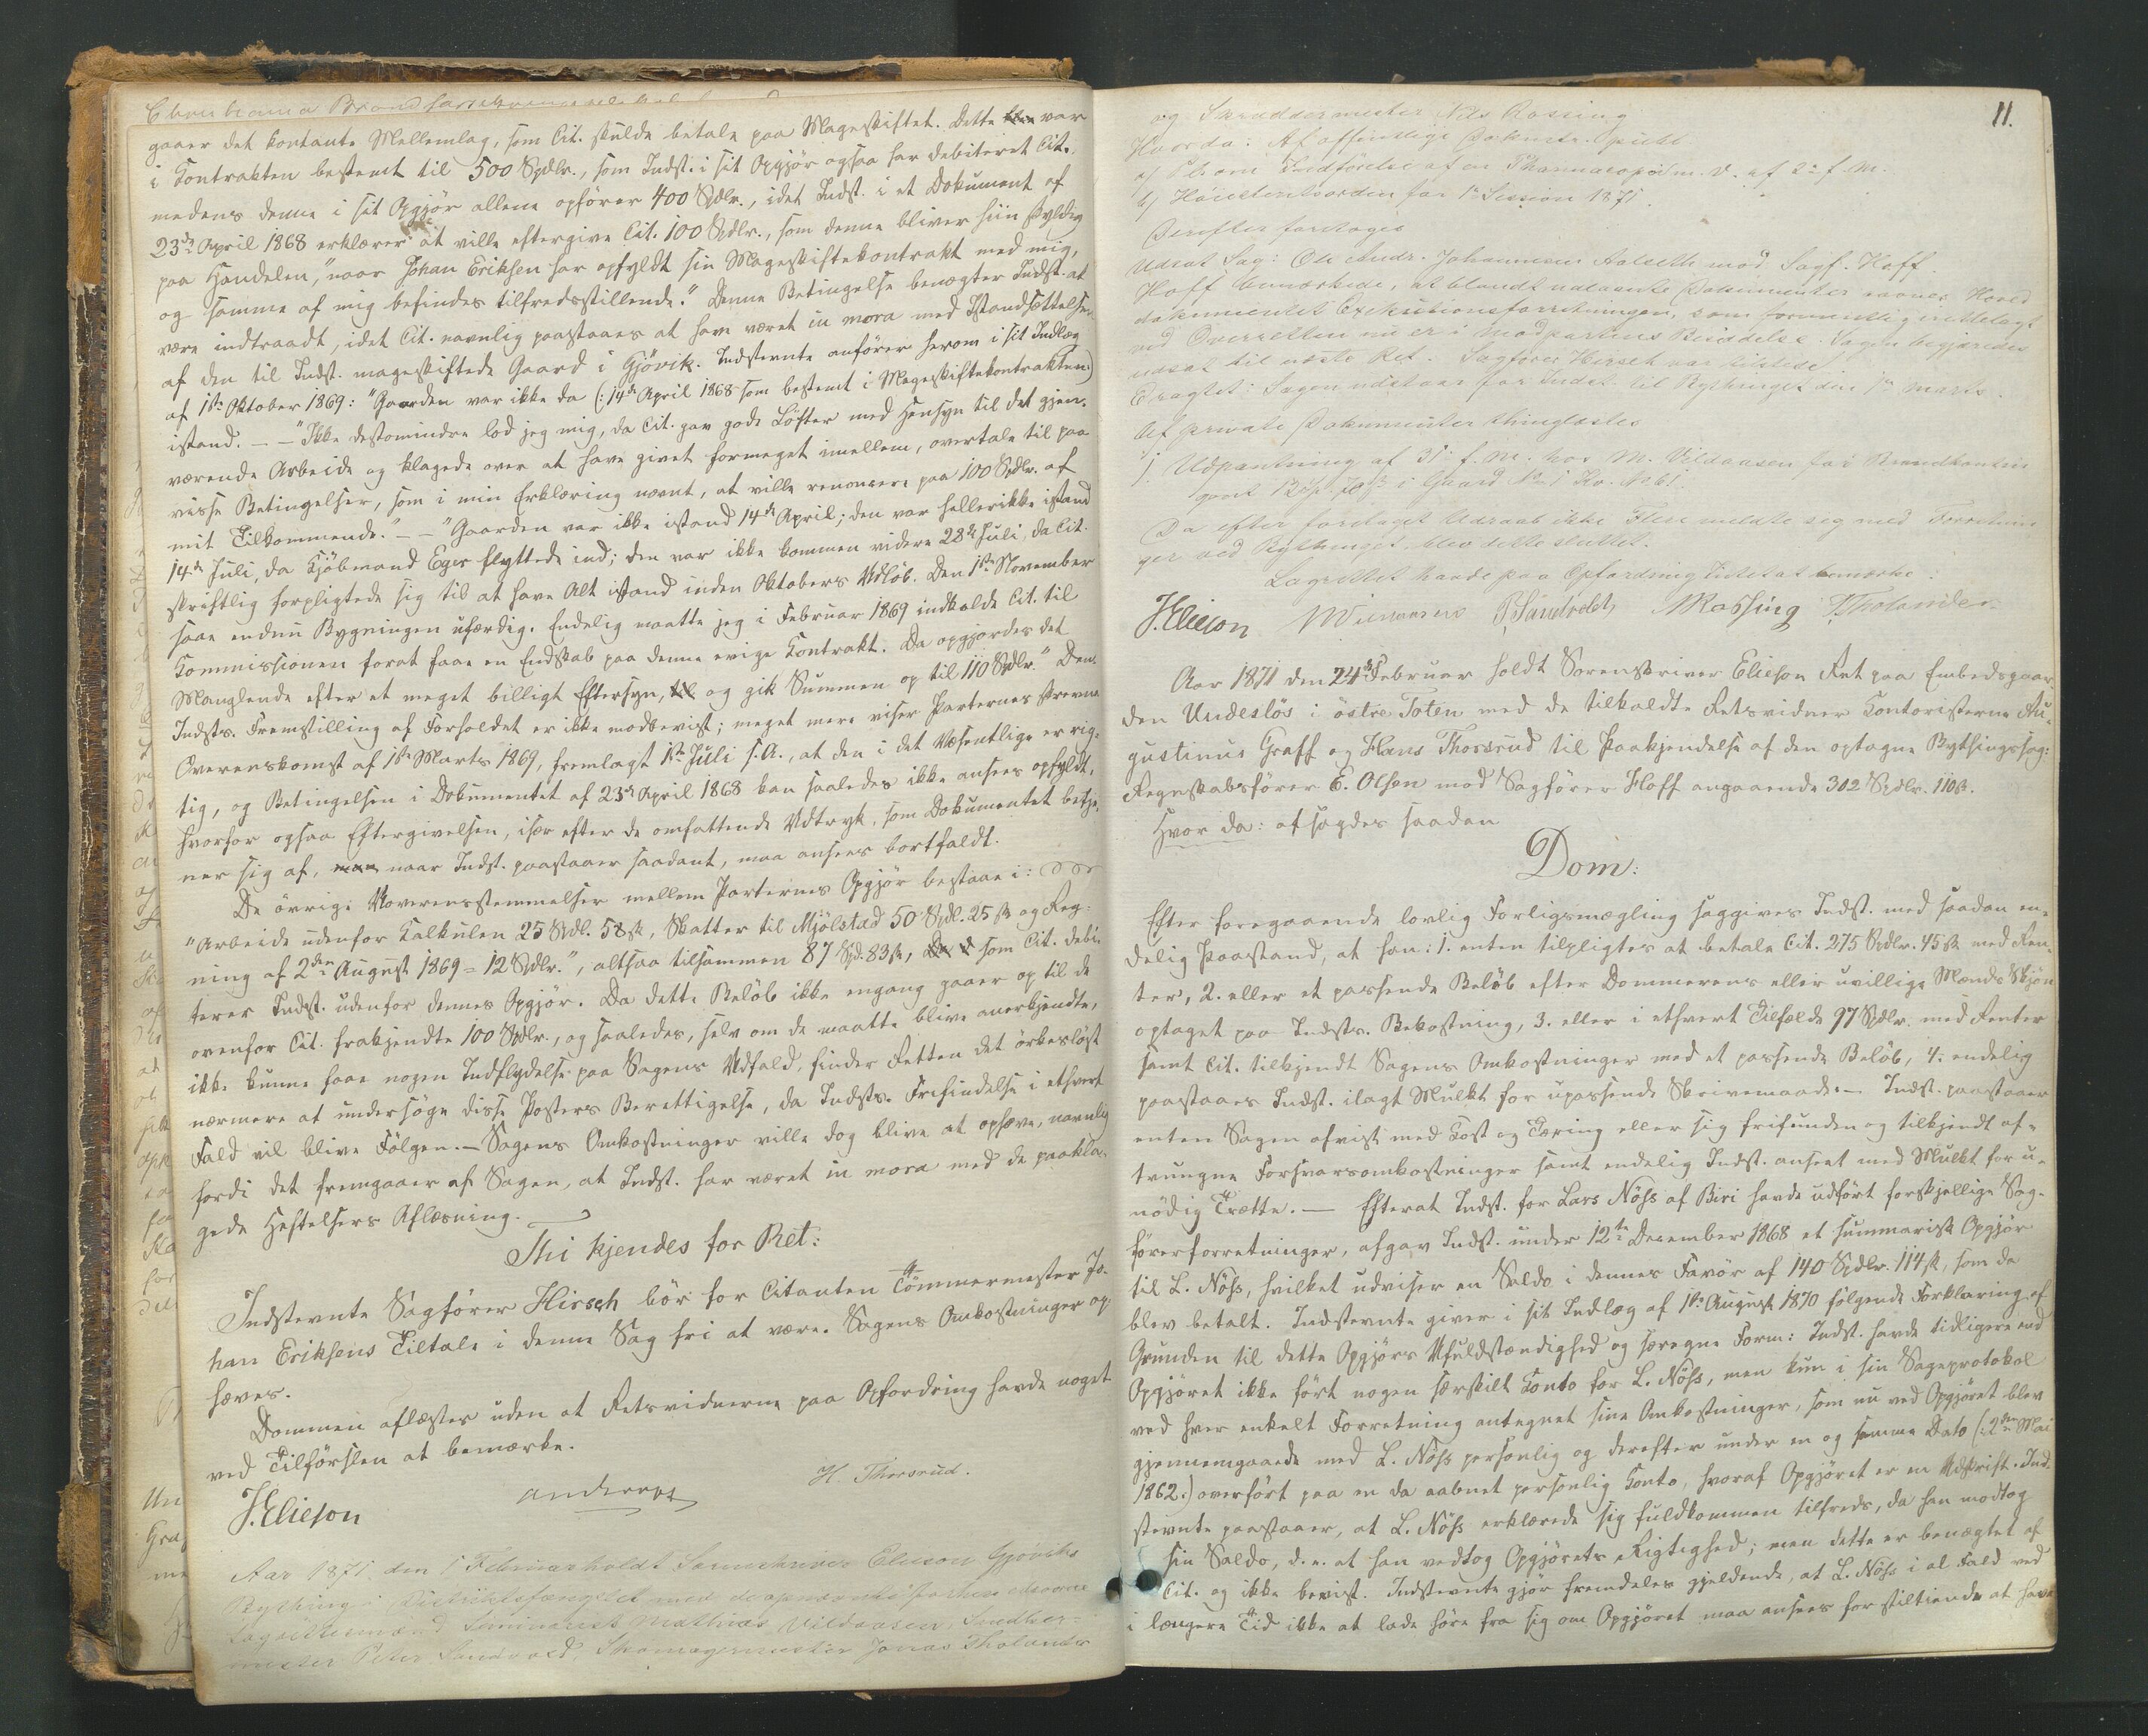 gaaer det kontante Mellemlag, som Cit. skulde betale paa Mageskiftet. Dette blev var
i Kontrakten bestemt til 500 Spdlr., som Indst. i sit Opgjør ogsaa har debiteret Cit.,
medens denne i sit Opgjør allene opfører 400 Spdlr., idet Indst. i et Dokument af
23de April 1868 erklærer at ville eftergive Cit. 100 Spdlr., som denne bliver hiin skyldig
paa Handelen, "naar Johan Eriksen har opfyldt sin Mageskiftekontrakt med mig,
og samme af mig befindes tilfredsstillende." Denne Betingelse benægter Indst. at
være indtraadt, idet Cit. navnlig paastaaes at have været in mora med Istandsættelsen
af den til Indst. mageskiftede Gaard i Gjövik. Indstevnte anfører herom i sit Indlæg
af 1ste Oktober 1869: "Gaarden var ikke da (: 14de April 1868 som bestemt i Mageskiftekontrakten)
istand. – – "Ikke destomindre lod jeg mig, da Cit. gav gode Løfter med Hensyn til det gjen-
værende Arbeide og klagede over at have givet formeget imellem, overtale til paa
visse Betingelser, som i min Erklæring nævnt, at ville renoncere paa 100 Spdlr. af
mit Tilkommende." – – "Gaarden var ikke istand 14de April; den var hellerikke istand
14de Juli, da Kjøbmand Eger flyttede ind; den var ikke kommen videre 28de Juli, da Cit.
skriftlig forpligtede sig til at have Alt istand inden Oktobers Udløb. Den 1ste November
saae endnu Bygningen ufærdig. Endelig maatte jeg i Februar 1869 indkalde Cit. til
Kommissionen forat faae en Endskab paa denne evige Kontrakt. Da opgjordes det
Manglende efter et meget billigt Eftersyn, til og gik Summen op til 110 Spdlr." Den-
Indsts. Fremstilling af Forholdet er ikke modbevist; meget mere viser Parternes skrevne
Overenskomst af 1ste Marts 1869, fremlagt 1ste Juli s. A., at den i det Væsentlige er rig-
tig, og Betingelsen i Dokumentet af 23de April 1868 kan saaledes ikke ansees opfyldt,
hvorfor ogsaa Eftergivelsen, især efter de omfattende Udtryk, som Dokumentet betje-
ner sig af, man naar Indst. paastaaer saadant, maa ansees bortfaldt.
De øvrige Uoverensstemmelser mellem Parternes Opgjør bestaae i:
"Arbeide udenfor Kalkulen 25 Spdl. 58 sk, Skatter til Mjølstad 50 Spdl. 25 sk og Reg-
ning af 2den August 1869 = 12 Spdlr.", altsaa tilsammen 87 Spd. 83 sk, som Cit. debi-
terer Indst. udenfor dennes Opgjør. Da dette Beløb ikke engang gaaer op til de
ovenfor Cit. frakjendte 100 Spdlr., og saaledes, selv om de maatte blive anerkjendte,
ikke kunne faae nogen Indflydelse paa Sagens Udfald, finder Retten det ørkesløst
nærmere at undersøge disse Posters Berettigelse, da Indsts. Frifindelse i ethvert
Fald vil blive Følgen. – Sagens Omkostninger ville dog blive at ophæve, navnlig
fordi det fremgaaer af Sagen, at Indst. har været in mora med de paakla-
gede Heftelsers Aflæsning.
Thi kjendes for Ret:
Indstevnte Sagfører Hirsch bør for Citanten Tømmermester Jo-
han Eriksens Tiltale i denne Sag fri at være. Sagens Omkostninger op-
hæves.
Dommen aflæstes uden at Retsvidnerne paa Opfordring havde noget
ved Tilførslen at bemærke.
J. Elieson H. Thorsrud.
Aar 1871 den 1 Februar holdt Sorenskriver Elieson Gjøviks
Bything i Distriktsfængslet med de opnævnte
Lagrettesmænd Seminarist Mathias Vildaasen,
mester Peter Sandvold, Skomagermester Jonas Tholander
11.
og Skræddermester Nils Rossing
Hvor da: Af offentlige Dokumenter
a) Indførelse af en Pharmacopø m. v. af 2 f. M.
b) Høiesteretsorden for 1ste Session 1871.
Derefter foretoges
Udsat Sag: Ole Andr. Johannesen Aalseth mod Sagf. Hoff.
Hoff bemærkede, at blandt udtagne Dokumenter savnes Hoved
dokumentet Exekutionsforretningen, som
ved Overretten nu er i Modpartens Besiddelse. Sagen begjæredes
udsat til næste Ret. Sagfører Hirsch var tilstede.
Eragtet: Sagen udstaar for Indst. til Bythinget den 1ste Marts.
Af private Dokumenter thinglæstes
1. Udpantning af 31 f. M. hos M. Vildaasen for Brandkontin
gent i Gaard No 1
Da efter foretaget Udraab ikke Flere meldte sig med Forretnin
ger ved Bythinget, blev dette sluttet.
Lagrettet havde paa Opfordring Intet at bemærke:
J. Elieson MVildaasen PSandvold NRossing JTholander
Aar 1871 den 24de Februar holdt Sorenskriver Elieson Ret paa Embedsgaar-
den Undesløs i østre Toten med de tilkaldte Retsvidner Kontoristerne Au-
gustinus Graff og Hans Thorsrud til Paakjendelse af den optagne Bythingssag:
Regnskabsfører E. Olsen mod Sagfører Hoff angaaende 302 Spdlr. 110 sk.
Hvor da: afsagdes saadan
Dom:
Efter foregaaende lovlig Forligsmægling saggives Indst. med saadan en-
delig Paastand, at han: 1. enten tilpligtes at betale Cit. 275 Spdlr. 45 sk med Ren-
ter, 2. eller et passende Beløb efter Dommerens eller uvillige Mænds Skjøn
optaget paa Indsts. Bekostning, 3. eller i ethvert Tilfælde 97 Spdlr. med Renter
samt Cit. tilkjendt Sagens Omkostninger med et passende Beløb, 4. endelig
paastaaes Indst. ilagt Mulkt for upassende Skrivemaade. – Indst. paastaaer
enten Sagen afvist med Kost og Tæring eller sig frifunden og tilkjendt af-
tvungne Forsvarsomkostninger samt endelig Indst. anseet med Mulkt for u-
nødig Trætte. – Efterat Indst. for Lars Nøss af Biri havde udført forskjellige Sag-
førerforretninger, afgav Indst. under 12te December 1868 et summarisk Opgjør
til L. Nøss, hvilket udviser en Saldo i dennes Favør af 140 Spdlr. 114 sk, som da
blev betalt. Indstevnte giver i sit Indlæg af 1ste August 1870 følgende Forklaring af
Grunden til dette Opgjørs Ufuldstændighed og særegne Form: Indst. havde tidligere end
Opgjøret ikke ført nogen særskilt Konto for L. Nøss, men kun i sin Sagsprotokol
ved hver enkelt Forretning antegnet sine Omkostninger, som nu ved Opgjøret blev
gjennemgaaede med L. Nøss personlig og derefter under en og samme Dato (: 2den Mai
1862.) overført paa en da aabnet personlig Konto, hvoraf Opgjøret er en Udskrift. Ind-
stevnte paastaaer, at L. Nøss erklærede sig fuldkommen tilfreds, da han modtog
sin Saldo, d. e. at han vedtog Opgjørets Rigtighed; men dette er benægtet af
Cit. og ikke bevist. Indstevnte gjør fremdeles gjældende, at L. Nøss i al Fald ved
i længere Tid ikke at lade høre fra sig om Opgjøret maa ansees for stiltiende at have